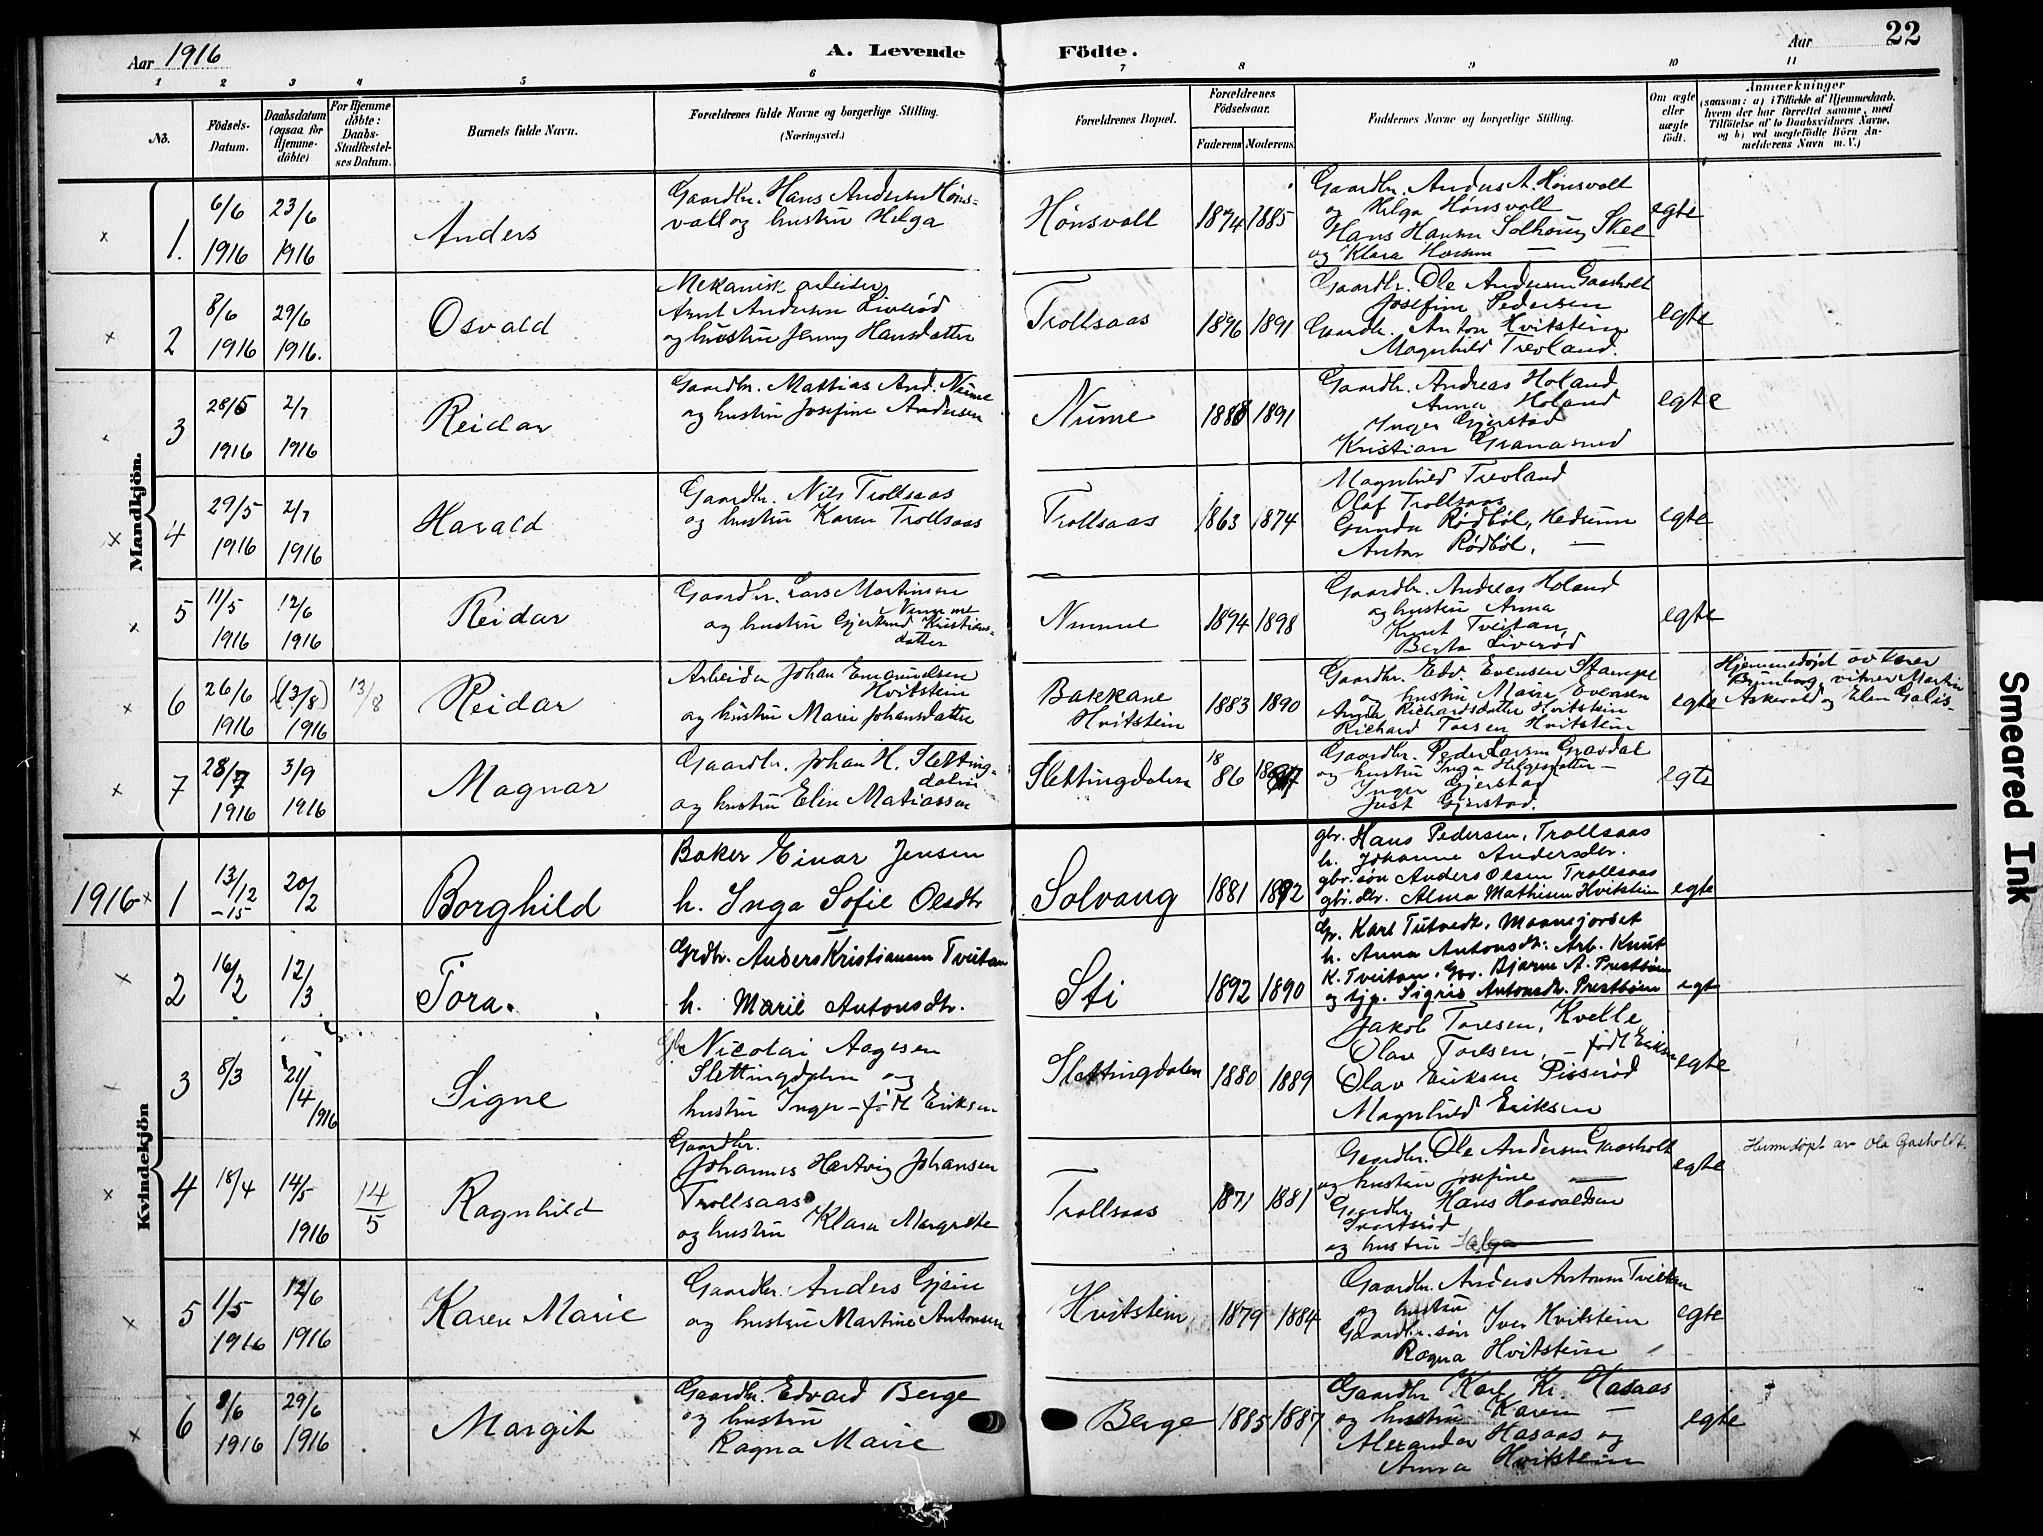 Aar 1916
A. Levende Födte.
Aar
22
1 2 3 4 5 6 7 8 9 10 11
No.
Födsels-
Datum.
Daabsdatum
(ogsaa for
Hjemme-
döbte)
For Hjemme
döbte:
Daabs-
Stadfæstel-
ses Datum.
Barnets fulde Navn.
Forældrenes fulde Navne og borgerlige Stilling.
(Næringsvei.)
Forældrenes Bopæl.
Forældrenes
Födselsaar.
Faderens Moderens
Faddernes Navne og borgerlige Stilling.
Om ægte
eller
uægte
födt.
Anmærkninger
(saasom: a) i Tilfælde af Hjemmedaab,
hvem der har forrettet samme, med
Tilföielse af to Daabsvidners Navne,
og b) ved uægtefödte Börn An-
melderens Navn m. V.)
Mandkjön.
1.
6/6
1916
23/6
1916
Anders
Gaardbr. Hans Andersen Høns-
vall og hustru Helga
Hönsvall
1874 1885
Gaardbr. Anders A. Hönsvall
og Helga Hönsvall
Hans Hansen Solhoug Skee
og Klara Hansen —
egte
2
8/6
1916
29/6
1916.
Osvald
Mekanisk arbeider
Arnt Andersen Liverød
og hustru Jenny Hansdatter
Trollsaas
1896 1891
Gaardbr. Ole Andersen Gaasholt
Josefine Pedersen
Gaardbr. Anton Hvitstein
Magnhild Trevland.
egte
3
28/5
1916
2/7
1916
Reidar
Gaardbr. Mattias And. Nume
og hustru Josefine Andersen
Nume
1888 1891
Gaardbr. Andreas Holand
Anna Holand
Inger Gjerstad
Kristian
egte
4
29/5
1916
2/7
1916
Harald
Gaardbr. Nils Trollsaas
og hustru Karen Trollsaas
Trollsaas
1863 1874
Magnhild Trevland
Olaf Trollsaas
Gunda Rødbøl, Hedrum
Anton Rødbøl. —
egte
5
11/5
1916
12/6
1916
Reidar
Gaardbr. Lars Martinsen
Numme
og hustru Gjertrud Kristians-
datter
Numme
1894 1898
Gaardbr. Andreas Holand
og hustru Anna
Knut Tveitan,
Berta Liverød
egte
6
26/6
1916
(13/8)
1916
13/8
Reidar
Arbeider Johan Emanuelsen
Hvitstein
og hustru Marie Johansdatter
Bakkane
Hvitstein
1883 1890
Gaardbr. Edv. Evensen Stampe
og hustru Marie Evensen
Richardsdatter Hvitstein
Richard Hvitstein
egte
Hjemmedøpt av
vitner Martin
Askevold og Elen
7
28/7
1916
3/9
1916
Magnar
Gaardbr. Johan H. Sletting-
dalen
og hustru Elen Matiassen
Slettingdalen
18
86
Gaardbr. Peder Larsen Gravdal
og hustru Inga Helgesdatter —
Inger Gjerstad
Just Gjerstad.
egte
Kvindekjön
1916
1
13/12
-15
20/2
Borghild
Baker Einar Jensen
h. Inga Sofie Olsdtr
Solvang
1881 1892
gbr. Hans Pedersen, Trollsaas
h. Johanne Andersdtr.
gbr. søn Anders Olsen Trollsaas
gbr. dtr. Alma Mathisen Hvitstein
egte
2
16/2
12/3
Tora.
Grdbr. Anders Kristiansen Tveitan
h. Marie Antonsdtr.
Sti
1892 1890
Gr. Karl Tutvedt, Maanejordet
h. Anna Antonsdtr. Arb. Knut
K. Tveitan, Gbr. Bjarne A. Prestbøen
og tjp. Sigrid Antonsdtr. Prestbøen
egte
3
8/3
24/4
1916
Signe
Gbr. Nicolai Aagesen
Slettingdalen og
hustru Inger - født Eriksen
Slettingdalen
1880 1889
Jakob Toresen, Kvelle
Olav Toresen, — født Eriksen
Olav Eriksen Pisserød
Magnhild Eriksen
egte
4
18/4
14/5
1916
14/5
Ragnhild
Gaardbr.
Johannes Hartvig Johansen
Trollsaas
og hustru Klara Margrethe
Trollsaas
1871 1881
Gaardbr. Ole Andersen Gaasholt
og hustru Josefine —
Gaardbr. Hans Haavaldsen
Svartsrød
og hustru Helga —
egte
Hjemdøpt av Ola Gasholdt.
5
1/5
1916
12/6
1916
Karen Marie
Gaardbr. Anders Gjein
og hustru Martine Antonsen
Hvitstein
1879 1884
Gaardbr. Anders Antonsen Tveitan
og hustru
Gaardbr.søn Iver Hvitstein
Ragna Hvitstein
egte
6
8/6
1916
29/6
1916
Margit
Gaardbr. Edvard Berge
og hustru
Ragna Marie
Berge
1885 1887
Gaardbr Karl Kr. Hasaas
og hustru Karen —
Alexander Hasaas og
Anna Hvitstein
egte
Smeared Ink